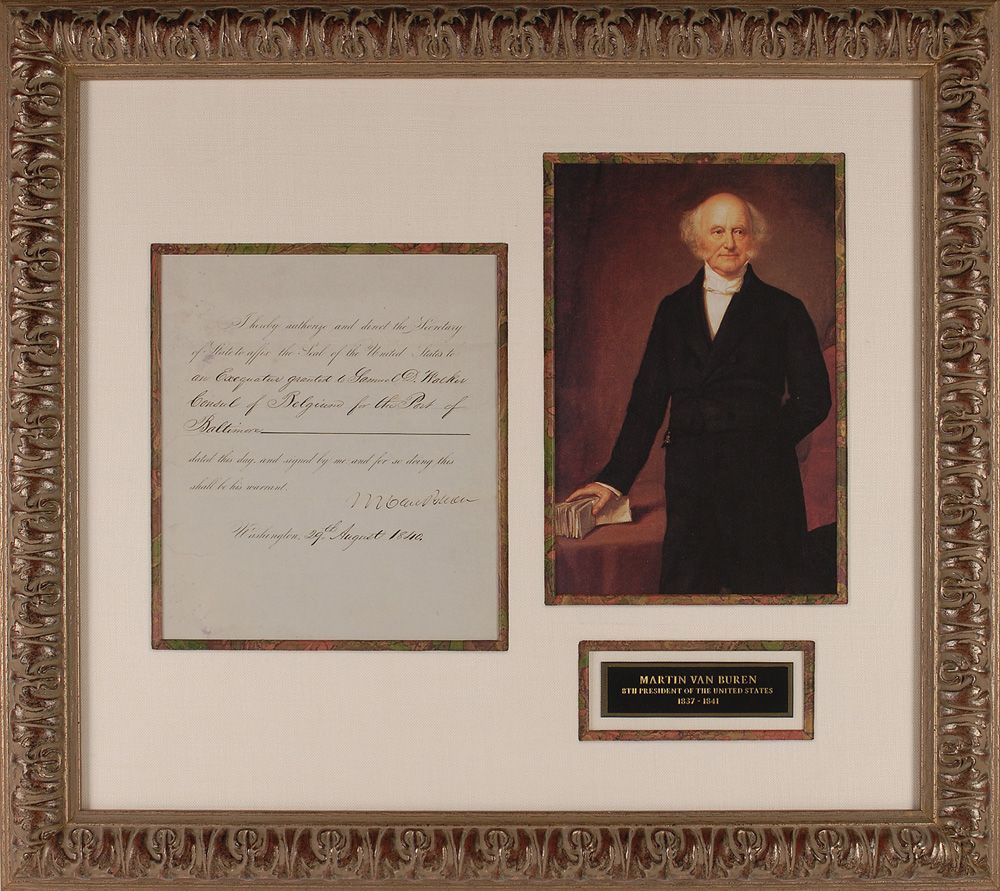 I hereby authorize and direct the Secretary
of State to affix the Seal of the United States to
an Exequatur granted to Samuel D. Walker
Consul of Belgium for the Port of
Baltimore
dated this day, and signed by me, and for so doing this
shall be his warrant.
M Van Buren
Washington, 29th August 1840.
MARTIN VAN BUREN
8TH PRESIDENT OF THE UNITED STATES
1837 - 1841